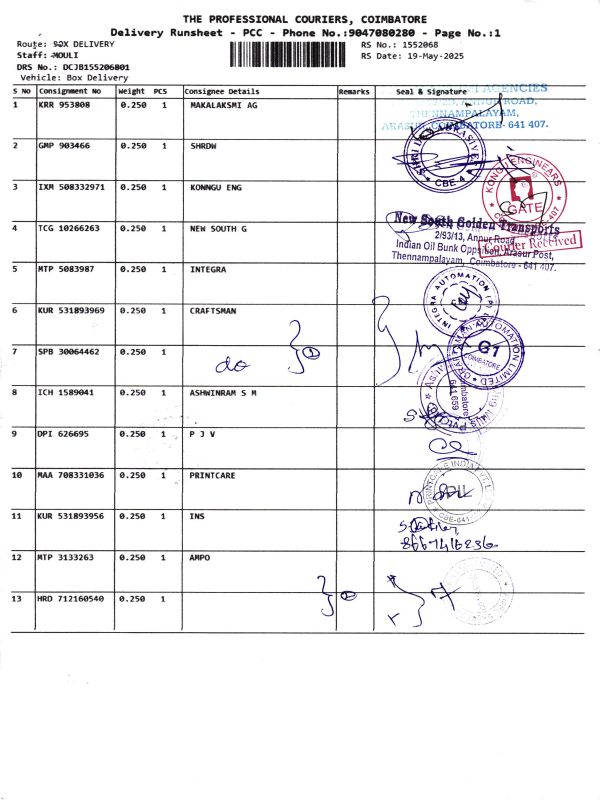 THE PROFESSIONAL COURIERS, COIMBATORE
Delivery Runsheet - PCC - Phone No.:9047080280 - Page No.:1
Route: BOX DELIVERY RS No.: 1552068
Staff: MOULI RS Date: 19-May-2025
DRS No.: DCJB155206801
Vehicle: Box Delivery
S No Consignment No Weight PCS Consignee Details Remarks Seal & Signature
AGENCIES
ROAD,
THENNAMPALAYAM,
1 KRR 953808 0.250 1 MAKALAKSMI AG
COIMBATORE- 641 407.
2 GMP 903466 0.250 1 SHRDW
CBE-4
3 IXM 508332971 0.250 1 KONNGU ENG
KONGU ENGINEARS
GATE
4 TCG 10266263 0.250 1 NEW SOUTH G
New South Golden Transports
2/93/13, Annur Road,
Indian Oil Bunk Opposite, Arasur Post,
Thennampalayam, Coimbatore - 641 407.
Courier Received
5 MTP 5083987 0.250 1 INTEGRA
INTEGRA AUTOMATION (P)
6 KUR 531893969 0.250 1 CRAFTSMAN
CRAFTSMAN AUTOMATION LIMITED
G1
COIMBATORE
7 SPB 30064462 0.250 1
do
8 ICH 1589041 0.250 1 ASHWINRAM S M
Coimbatore
641 659
9 DPI 626695 0.250 1 P J V
10 MAA 708331036 0.250 1 PRINTCARE
PRINTCARE INDIA PVT.L
CBE-641
11 KUR 531893956 0.250 1 INS
8667416236
12 MTP 3133263 0.250 1 AMPO
13 HRD 712160540 0.250 1